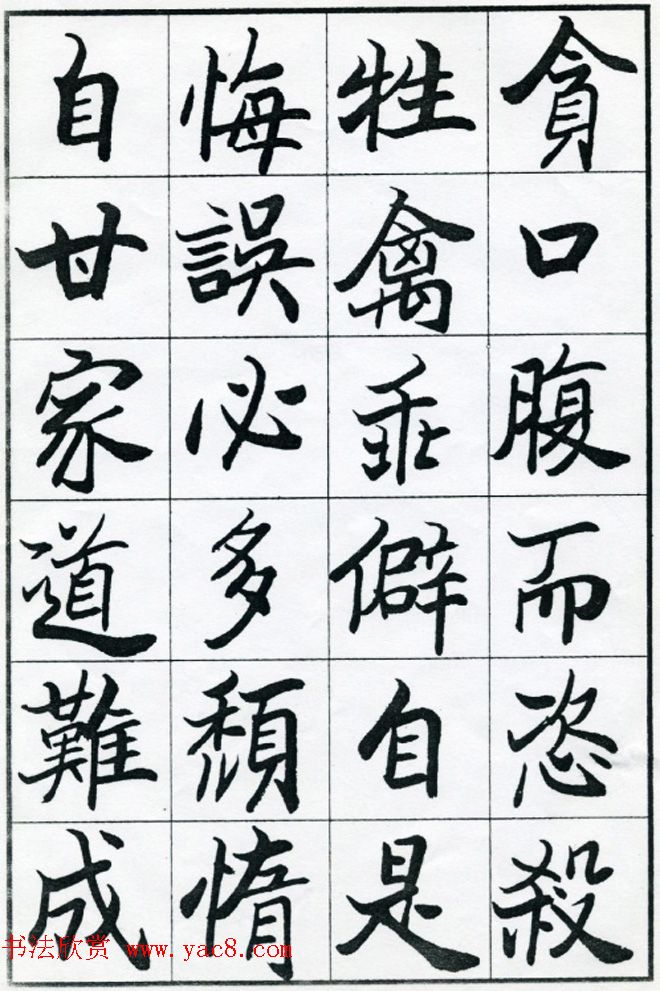 貪口腹而恣殺
牲禽乖僻自是
悔誤必多頹惰
自甘家道難成
书法欣赏 www.yac8.com